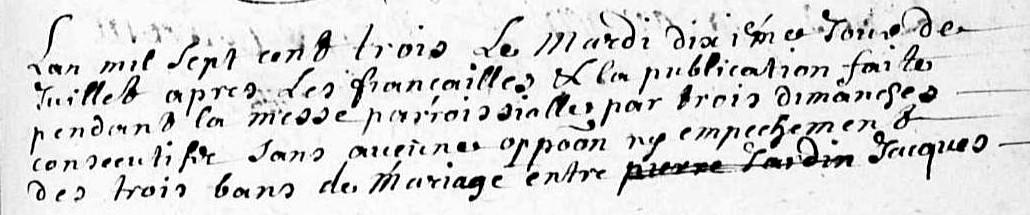 Lan mil sept cent trois Le Mardi dixiéme Jour de
Juillet apres Les françailles & la publication faite
pendant la messe parroissialle par trois dimanches
consecutifs sans aucune oppoōn ny empechement
des trois bans de Mariage entre pierre Jardin Jacques